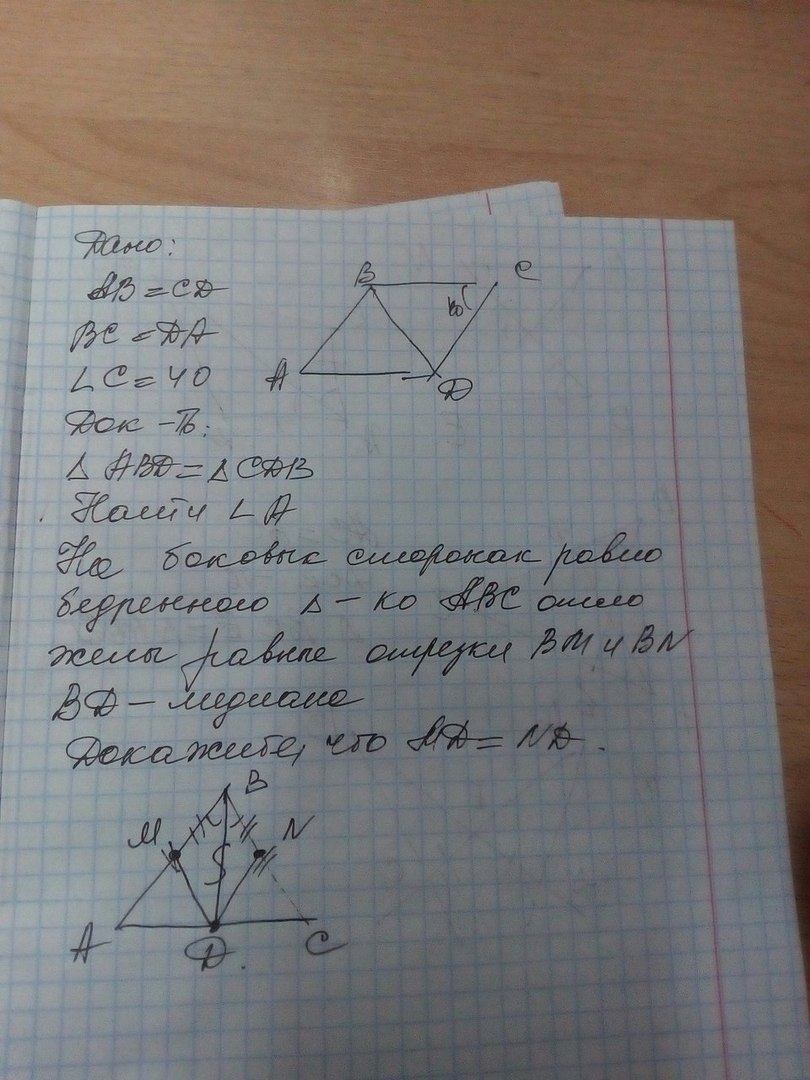 Дано:
AB = CD
BC = DA
∟C = 40
Док-ть:
Δ ABD = Δ CDB
Найти ∟A
На боковых сторонах равно
бедренного Δ - ка ABC отло
жены равные отрезки BM и BN
BD - медиана
Докажите, что MD = ND.
B
C
A
D
B
M
N
A
D.
C